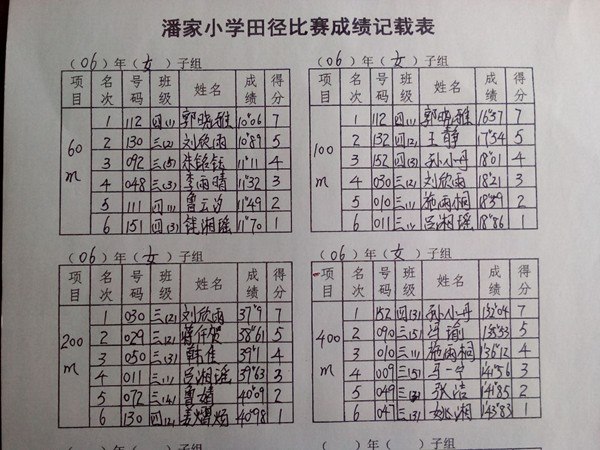 潘家小学田径比赛成绩记载表
(06)年(女)子组
项目 名次 号码 班级 姓名 成绩 得分
60m
1 112 四(1) 郭晓雅 10"06 7
2 130 三(2) 刘欣雨 10"89 5
3 092 三(5) 朱铭钰 11"11 4
4 048 三(3) 李雨晴 11"32 3
5 111 四(1) 曹云汐 11"49 2
6 151 四(3) 湘瑶 11"70 1
(06)年(女)子组
项目 名次 号码 班级 姓名 成绩 得分
100m
1 112 四(1) 郭晓雅 16"57 7
2 132 四(2) 王静 17"54 5
3 152 四(3) 孙小丹 18"01 4
4 030 三(2) 刘欣雨 18"21 3
5 010 三(1) 施雨桐 18"39 2
6 011 三(1) 吕湘瑶 18"86 1
(06)年(女)子组
项目 名次 号码 班级 姓名 成绩 得分
200m
1 030 三(2) 刘欣雨 37"9 7
2 029 三(2) 蒋仟贺 38"61 5
3 050 三(3) 韩佳 39"1 4
4 011 三(1) 吕湘瑶 39"63 3
5 072 三(4) 曹婧 40"09 2
6 130 四(2) 姜熠炀 40"98 1
(06)年(女)子组
项目 名次 号码 班级 姓名 成绩 得分
400m
1 152 四(3) 孙小丹 1'32"04 7
2 090 三(5) 瑜 5
3 010 三(1) 施雨桐 1'36"12 4
4 009 三(5) 马一宁 1'41"56 3
5 049 三(3) 张洁 1'41"85 2
6 047 三(3) 姚湘 1'43"83 1
( )年( )子组
( )年( )子组